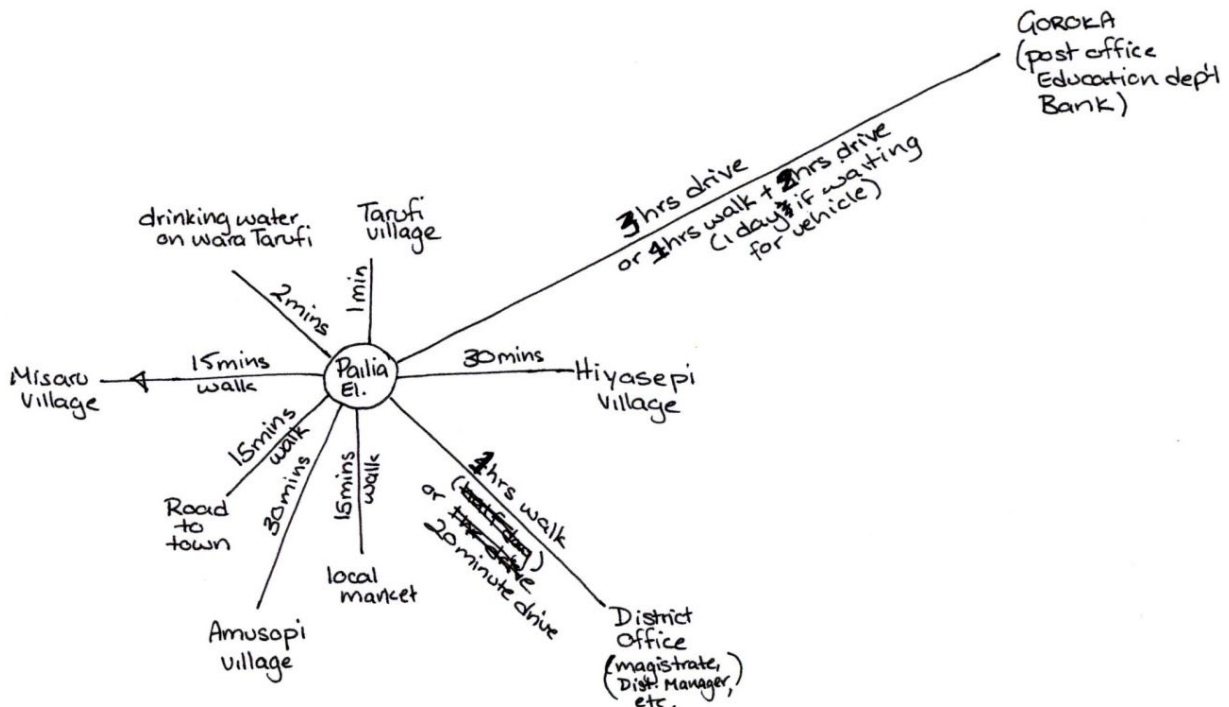 GOROKA
(post office
Education dep't
Bank)
3hrs drive
or 4hrs walk + 2hrs drive
(1 day if waiting
for vehicle)
drinking water
on wara Tarufi
2mins
Tarufi
village
1min
Misaru
village
15mins
walk
Pailia
El.
30mins
Hiyasepi
village
15mins
walk
Road
to
town
30mins
Amusopi
village
15mins
walk
local
market
4hrs walk
or
20 minute drive
District
Office
(magistrate,
Dist. Manager,)
etc.